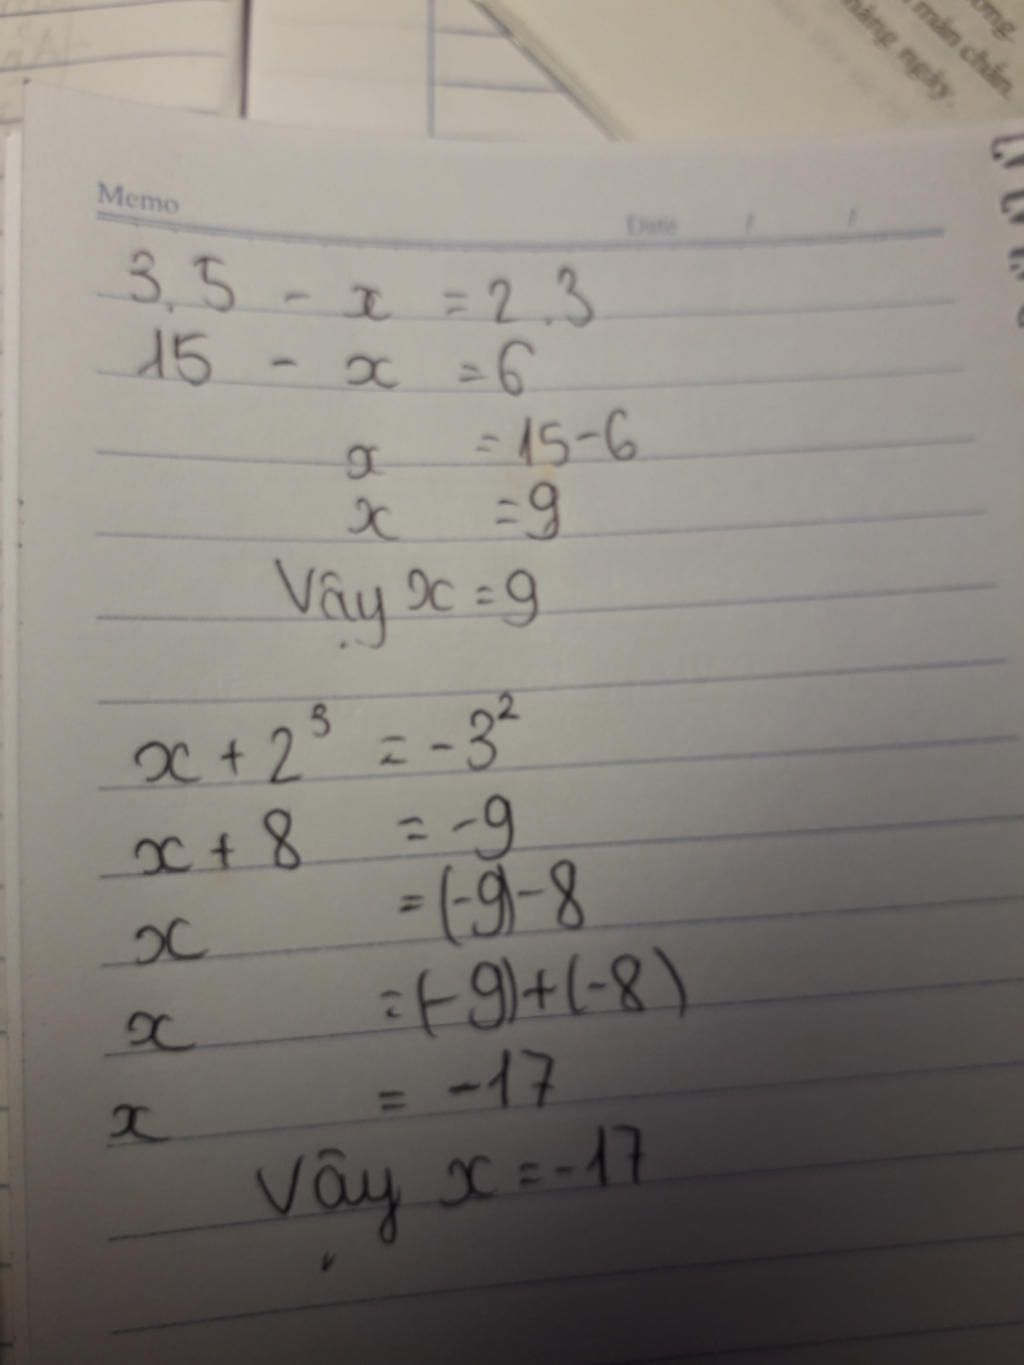 ương
mãn chắn.
hàng ngày.
Memo
Date / /
3.5 - x = 2.3
15 - x = 6
x = 15-6
x = 9
Vậy x = 9
x + 2³ = -3²
x + 8 = -9
x = (-9) - 8
x = (-9)+(-8)
x = -17
Vậy x = -17